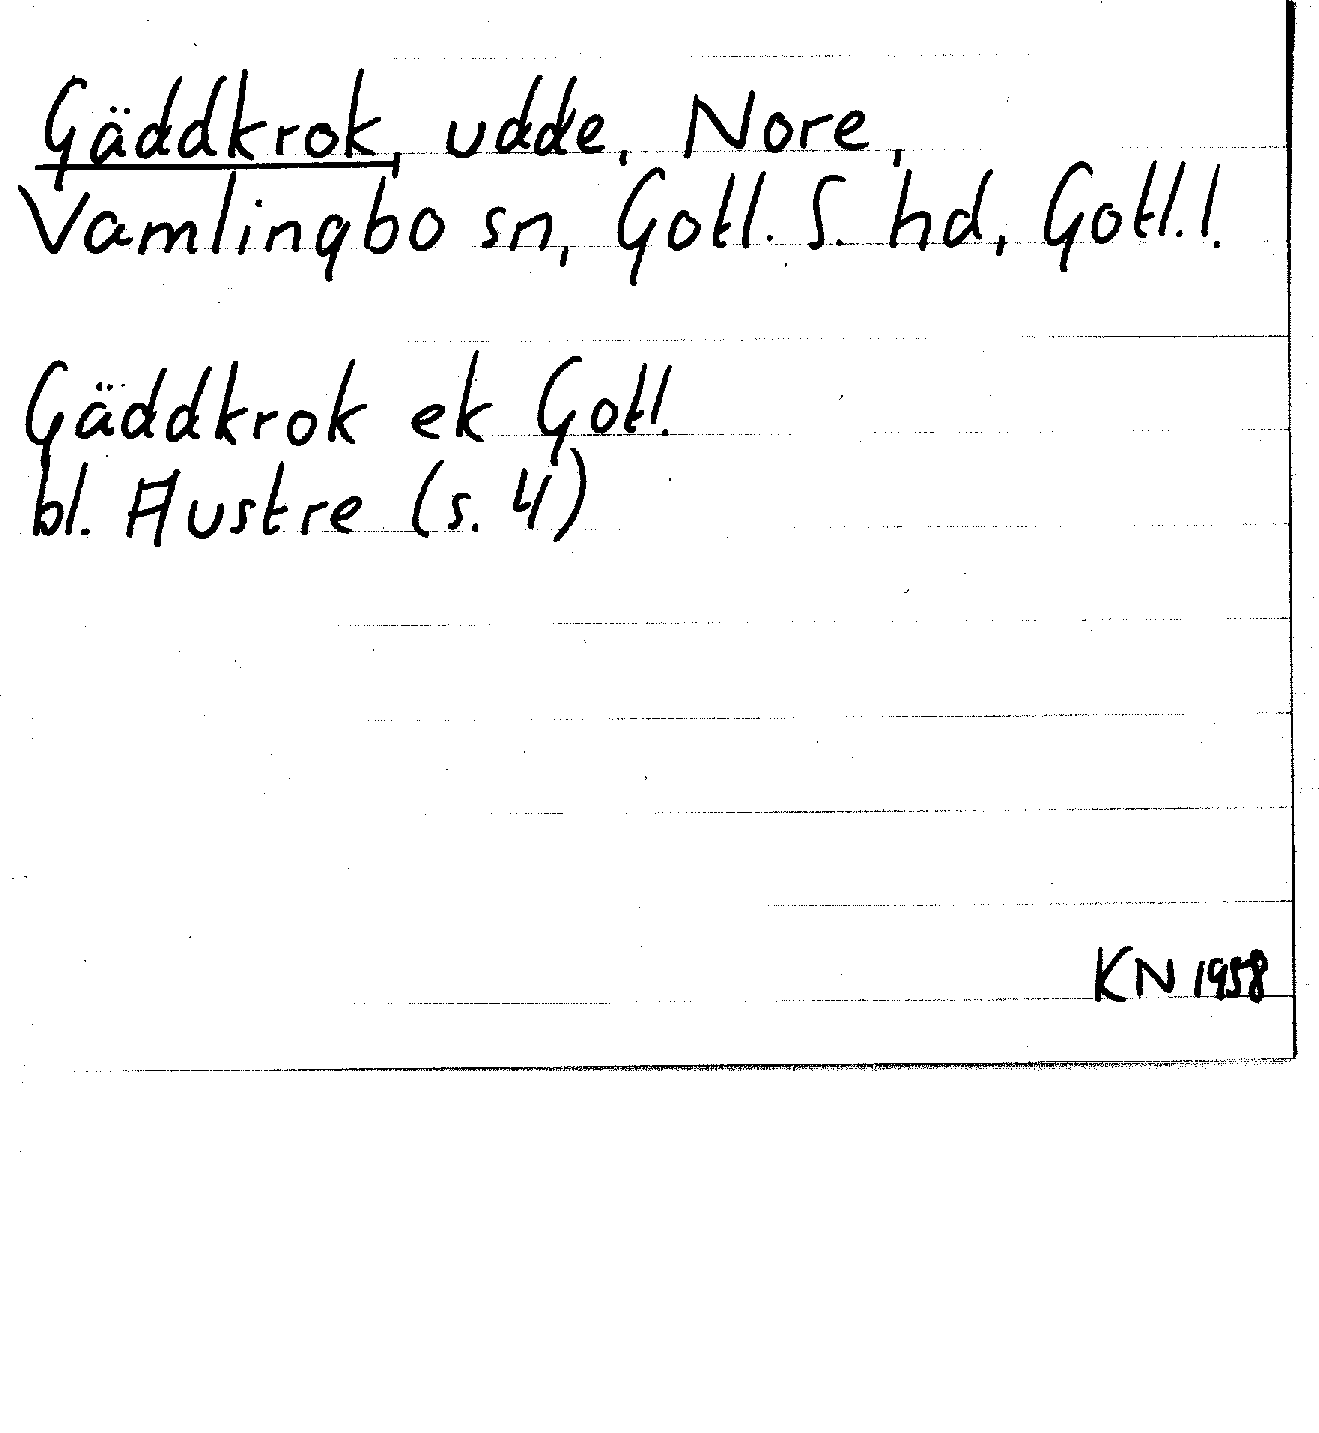 Gäddkrok, udde, Nore,
Vamlingbo sn, Gotl. S. hd, Gotl.!
Gäddkrok ek Gotl.
bl. Austre (s. 4)
KN 1958